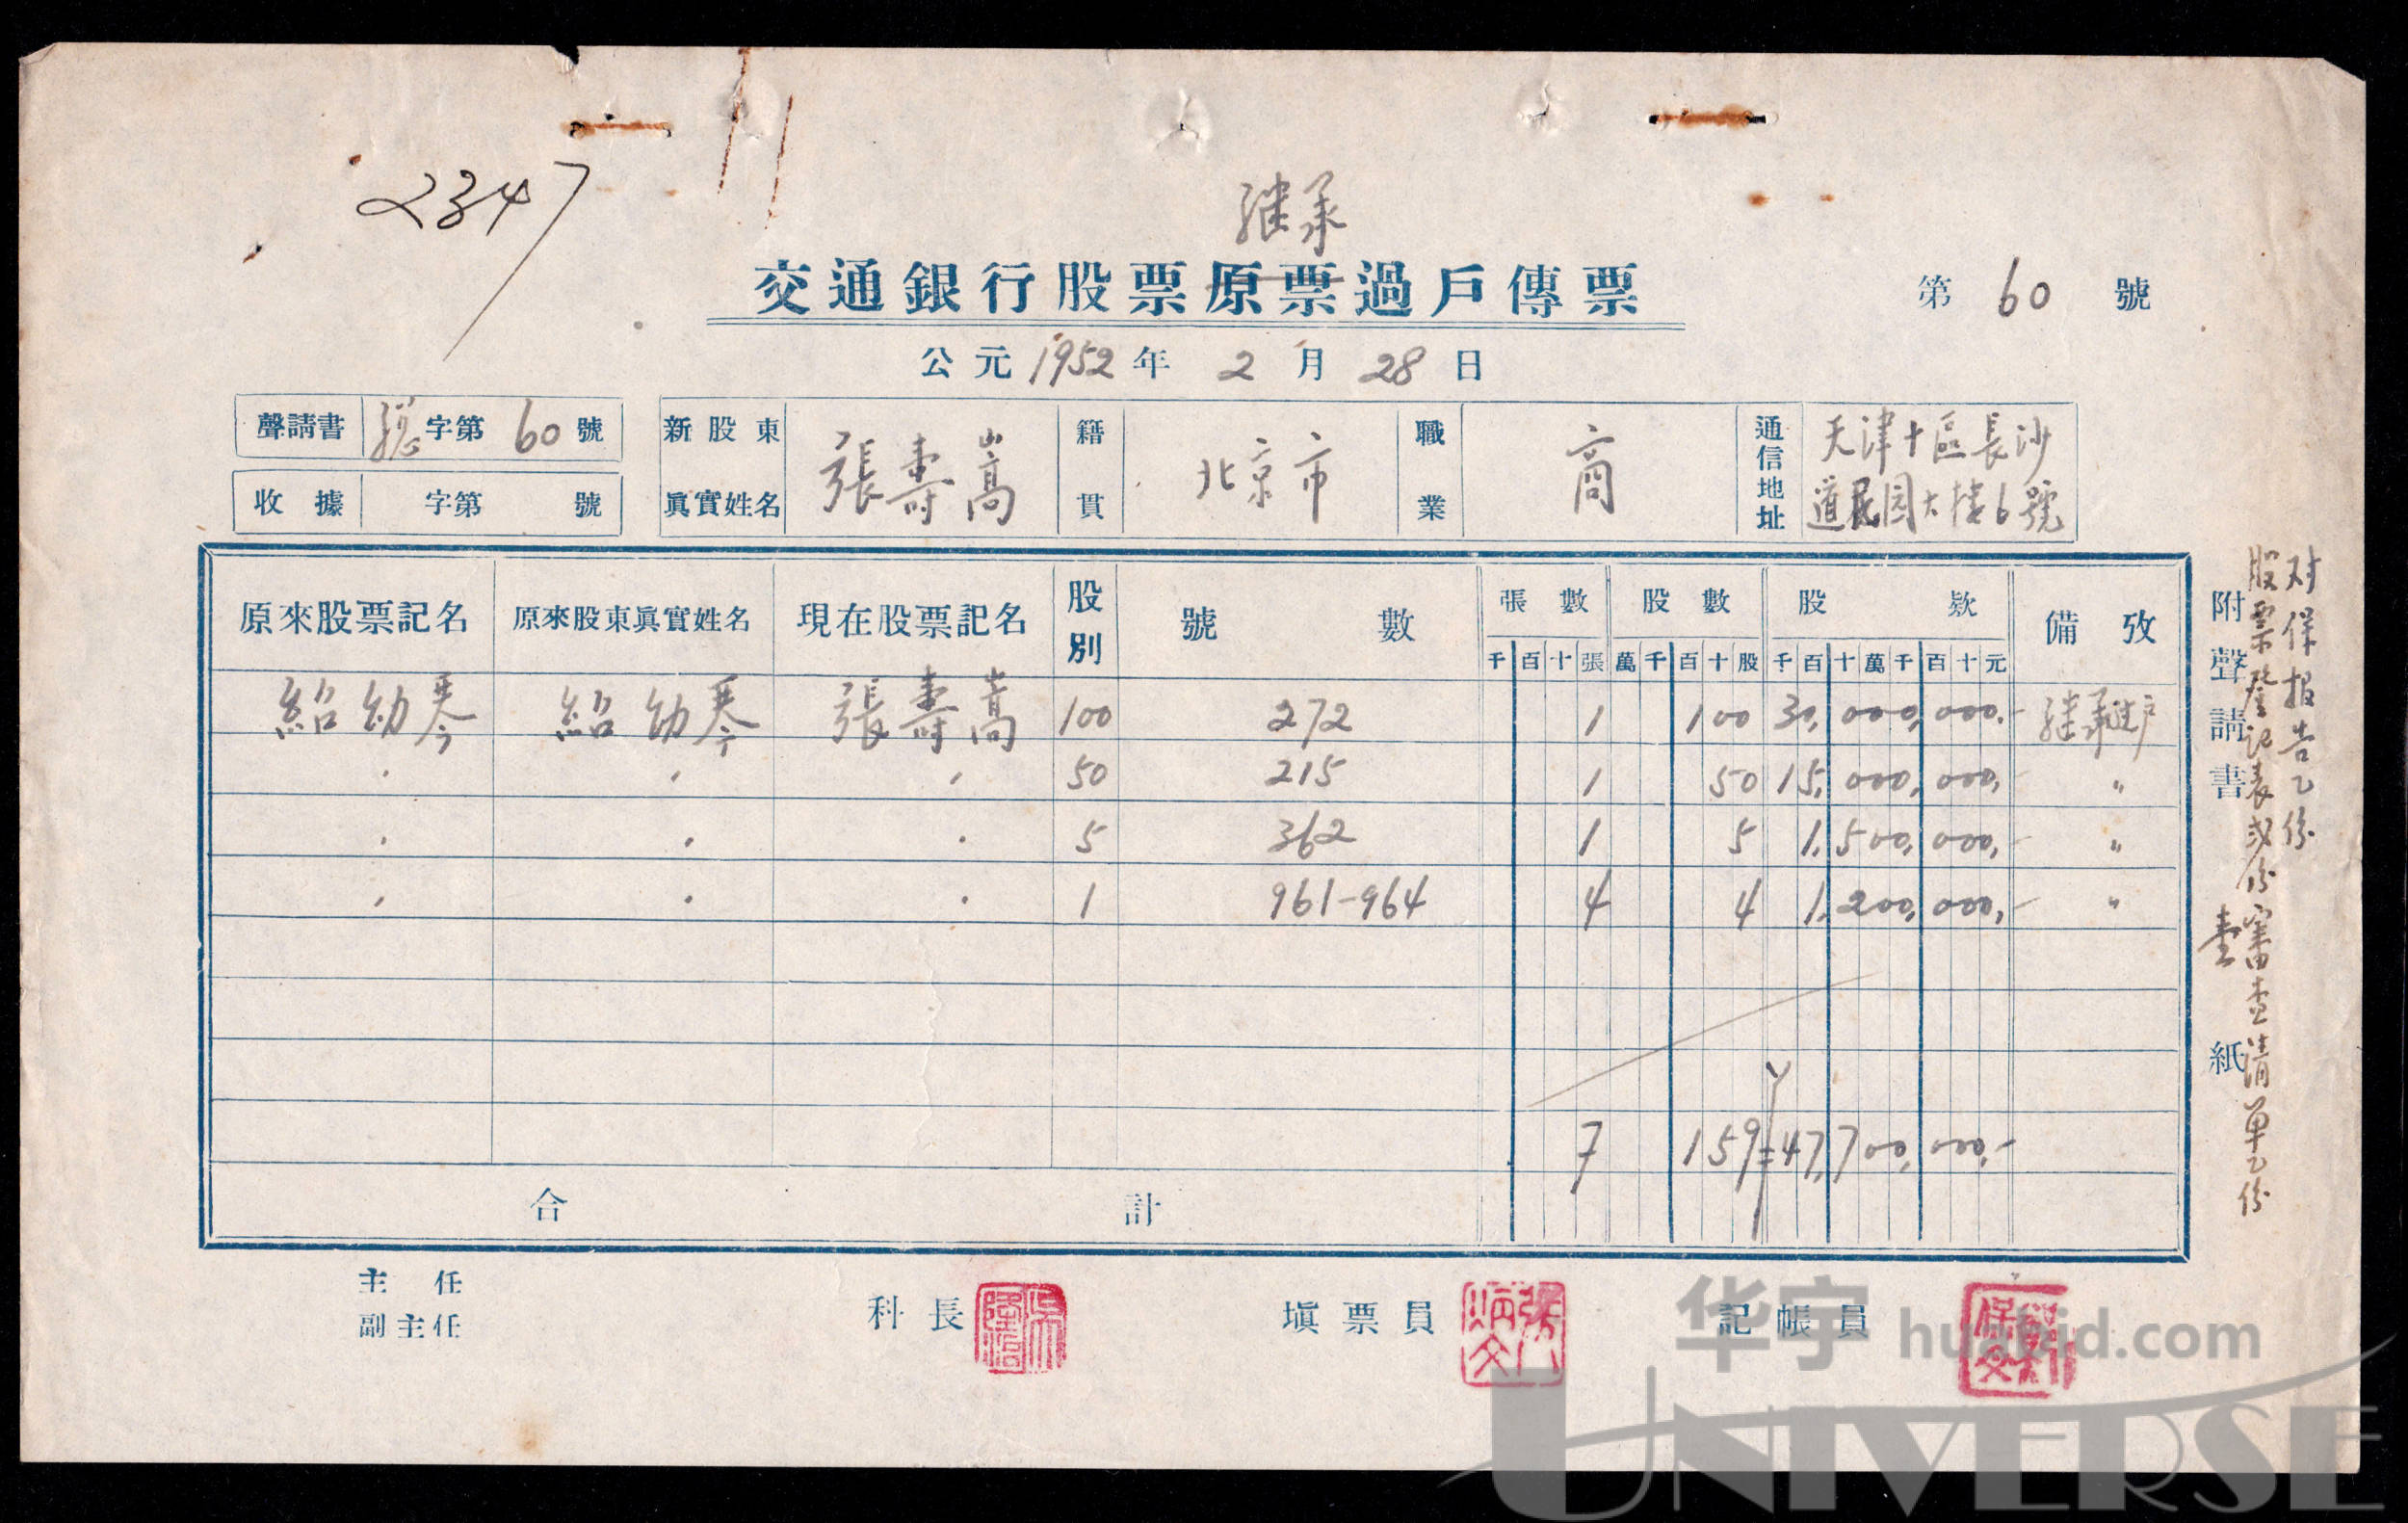 2347
继承
交通銀行股票原票過戶傳票
第 60 號
公元 1952 年 2 月 28 日
聲請書 字第 60 號
收據 字第 號
新股東真實姓名 張壽嵩 籍貫 北京市 職業 商 通信地址 天津十區長沙道民园大楼6號
原來股票記名 原來股東眞實姓名 現在股票記名 股別 號數 張數 股數 股欵 備攷
千 百 十 張 萬 千 百 十 股 千 百 十 萬 千 百 十 元
紹幼琴 紹幼琴 張壽嵩 100 272 1 100 30,000,000.- 继承过户
〃 〃 〃 50 215 1 50 15,000,000.- 〃
〃 〃 〃 5 362 1 5 1,500,000.- 〃
〃 〃 〃 1 961-964 4 4 1,200,000.- 〃
7 159 47,700,000.-
合計
附聲請書 壹 紙
股票登记表弍份審查清单乙份
对保报告乙份
主任
副主任
科長
塡票員
張炳文
記帳員
华宇 huabid.com
UNIVERSE